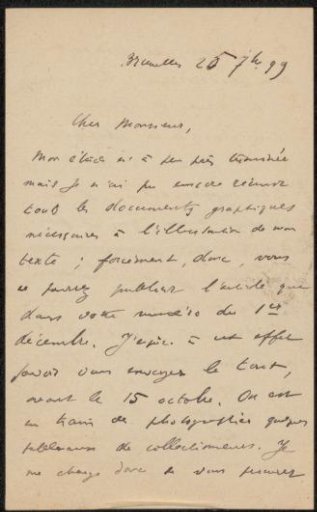 Bruxelles 25 7bre 99
Cher Monsieur,
Mon étude est à peu près terminée
mais je n'ai pu encore réunir
tout les documents graphiques
nécessaires à l'illustration de mon
texte ; forcément, donc, vous
ne pourrez publier l'article que
dans votre numéro du 1er
décembre. J'espère à cet effet
pouvoir vous envoyer le tout,
avant le 15 octobre. On est
en train de photographier quelques
tableaux de collectionneurs. Je
me charge donc de vous procurer